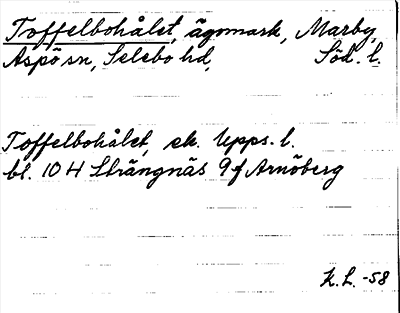 Toffelbohålet, ägomark, Marby,
Aspö sn, Selebo hd, Söd. l.
Toffelbohålet, ek. Upps. l.
bl. 10 H Strängnäs 9 f Arnöberg
K.L. -58